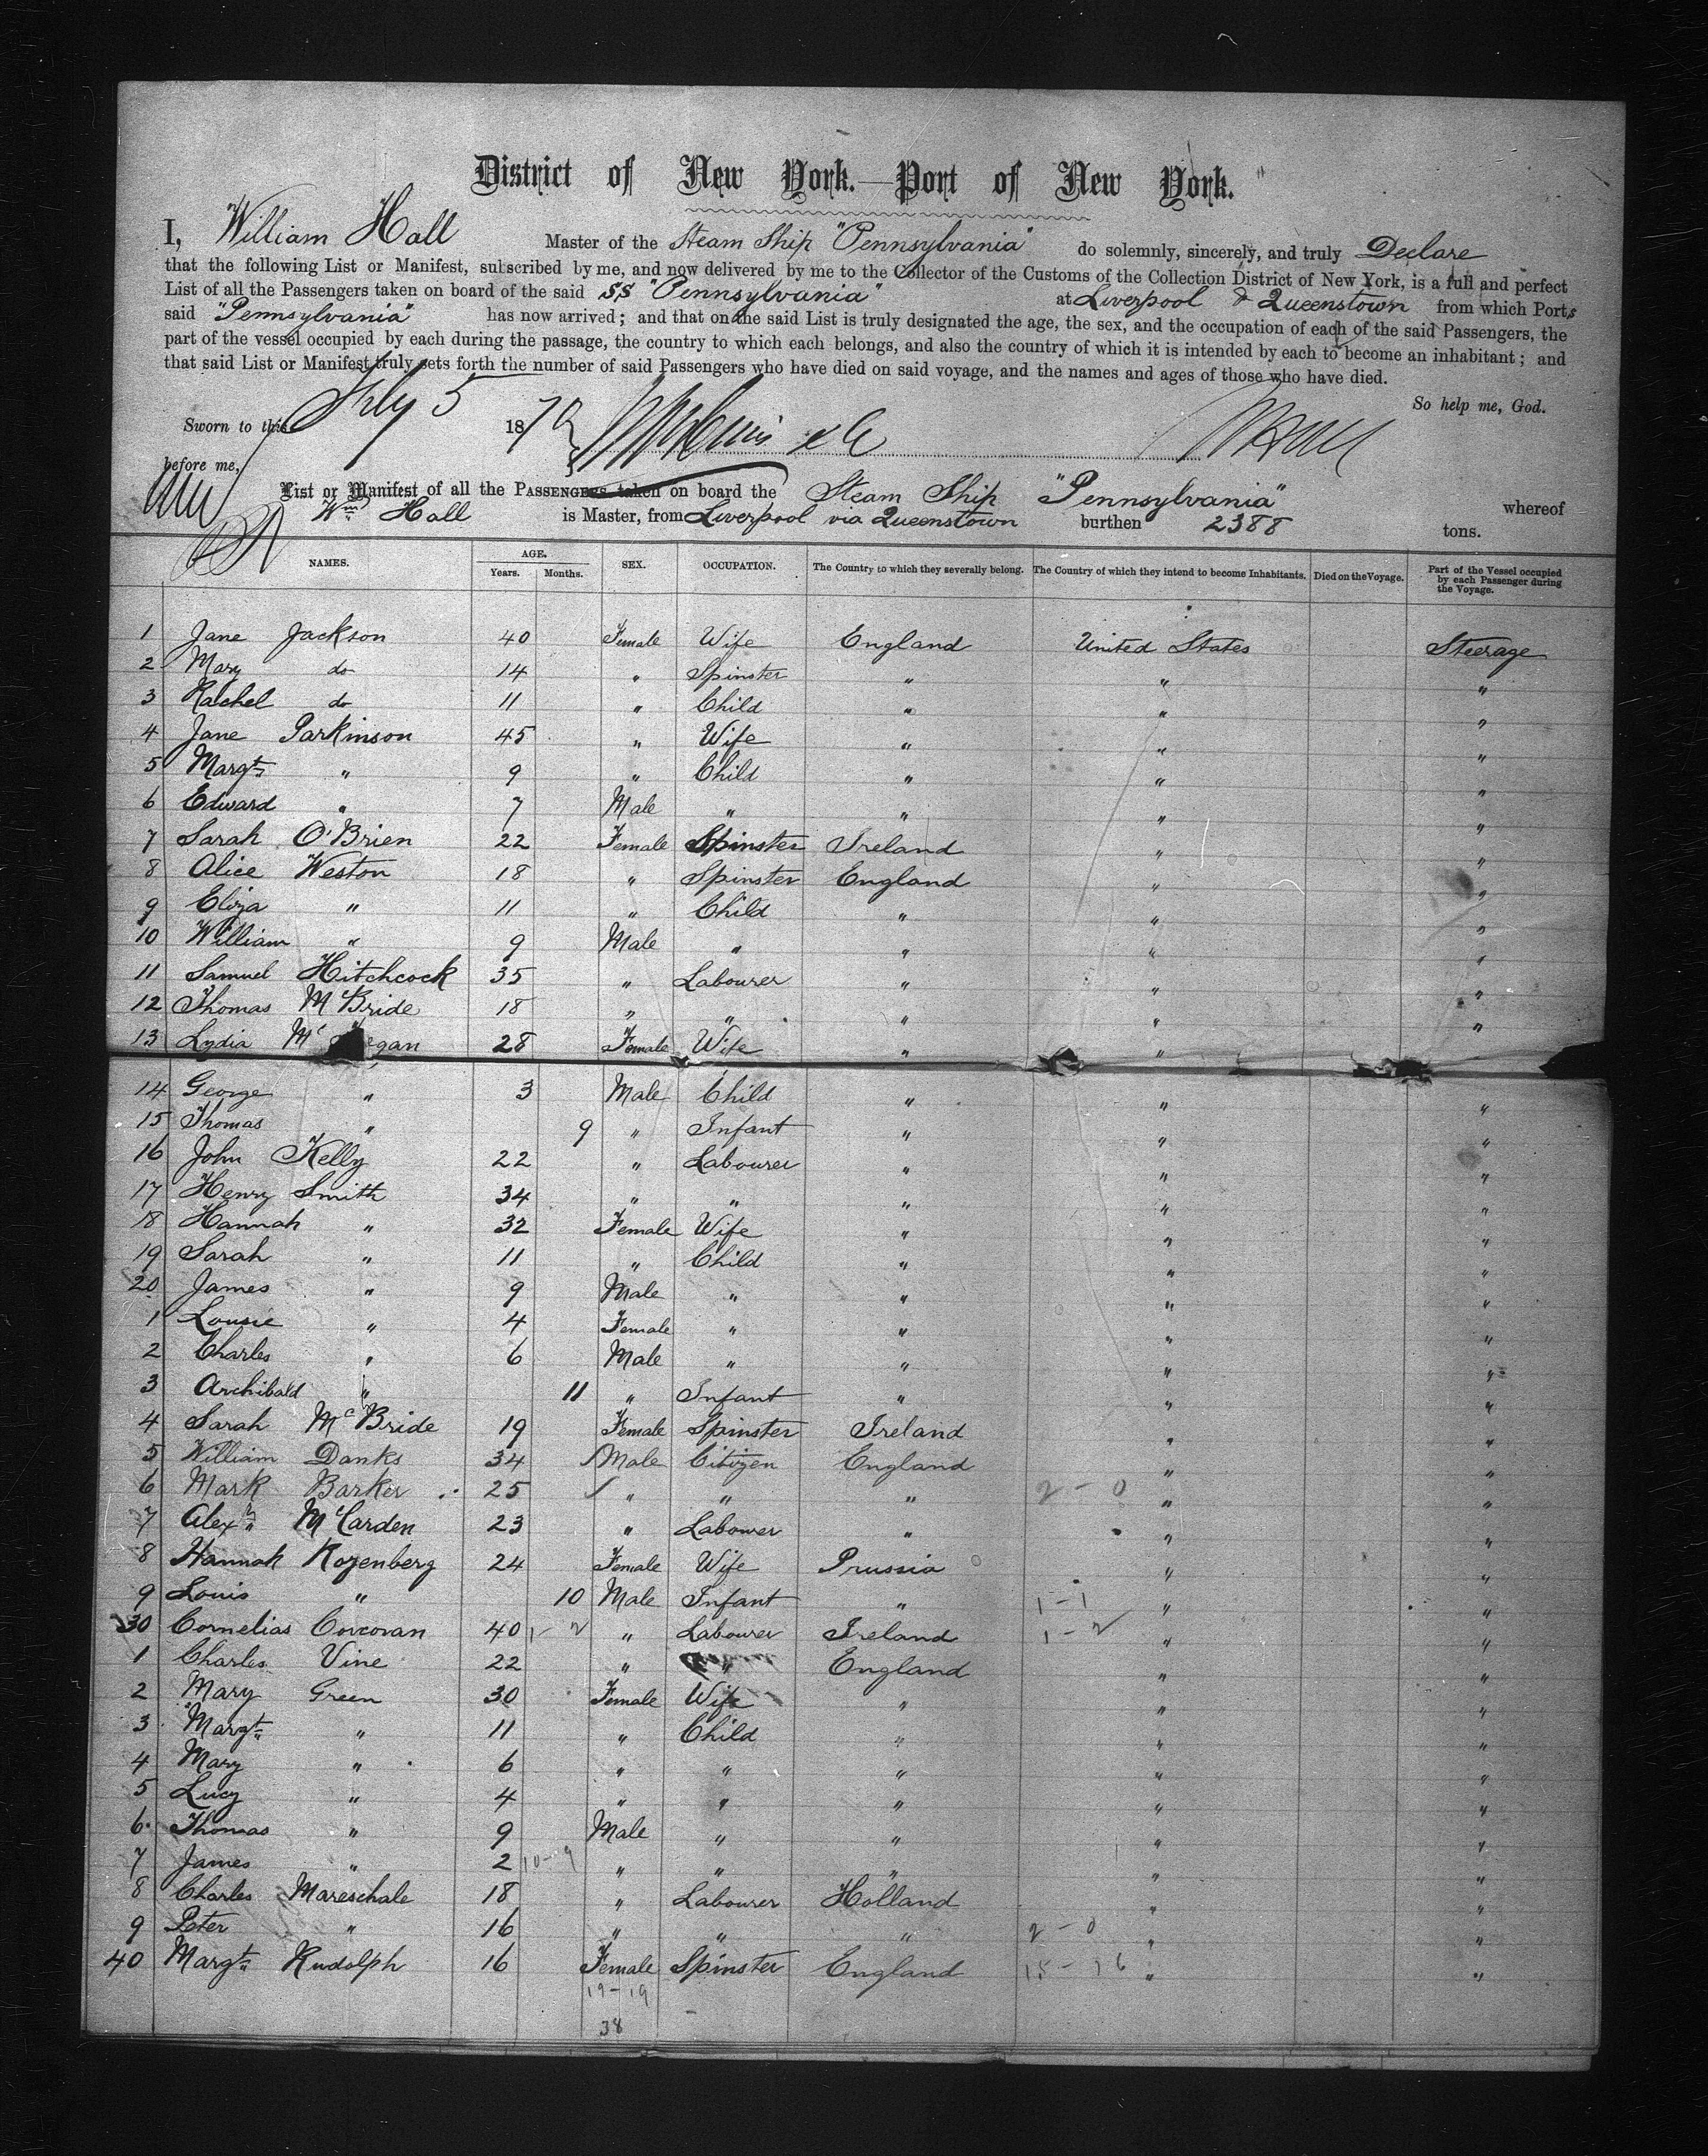 District of New York.—Port of New York.
I, William Hall Master of the Steam Ship "Pennsylvania" do solemnly, sincerely, and truly Declare
that the following List or Manifest, subscribed by me, and now delivered by me to the Collector of the Customs of the Collection District of New York, is a full and perfect
List of all the Passengers taken on board of the said SS "Pennsylvania" at Liverpool & Queenstown from which Ports
said "Pennsylvania" has now arrived; and that on the said List is truly designated the age, the sex, and the occupation of each of the said Passengers, the
part of the vessel occupied by each during the passage, the country to which each belongs, and also the country of which it is intended by each to become an inhabitant; and
that said List or Manifest truly sets forth the number of said Passengers who have died on said voyage, and the names and ages of those who have died.
So help me, God.
Sworn to this July 5 187
before me,
List or Manifest of all the PASSENGERS taken on board the Steam Ship "Pennsylvania" whereof
Wm Hall is Master, from Liverpool via Queenstown burthen 2388 tons.
NAMES. AGE. Years. Months. SEX. OCCUPATION. The Country to which they severally belong. The Country of which they intend to become Inhabitants. Died on the Voyage. Part of the Vessel occupied by each Passenger during the Voyage.
1 Jane Jackson 40 Female Wife England United States Steerage
2 Mary do 14 " Spinster " " "
3 Rachel do 11 " Child " " "
4 Jane Parkinson 45 " Wife " " "
5 Margt " 9 " Child " " "
6 Edward " 7 Male " " " "
7 Sarah O'Brien 22 Female Spinster Ireland " "
8 Alice Weston 18 " Spinster England " "
9 Eliza " 11 " Child " " "
10 William " 9 Male " " " "
11 Samuel Hitchcock 35 " Labourer " " "
12 Thomas McBride 18 " " " " "
13 Lydia Mc gan 28 Female Wife " "
14 George " 3 Male Child " " "
15 Thomas " 9 " Infant " " "
16 John Kelly 22 " Labourer " " "
17 Henry Smith 34 " " " " "
18 Hannah " 32 Female Wife " " "
19 Sarah " 11 " Child " " "
20 James " 9 Male " " " "
1 Lousie " 4 Female " " " "
2 Charles " 6 Male " " " "
3 Archibald " 11 " Infant " " "
4 Sarah McBride 19 Female Spinster Ireland " "
5 William Danks 34 Male Citizen England " "
6 Mark Barker 25 " " " 2-0 " "
7 Alexr McCarden 23 " Labourer " " "
8 Hannah Rozenberg 24 Female Wife Prussia " "
9 Louis " 10 Male Infant " 1-1 " "
30 Cornelias Corcoran 40 1-2 " Labourer Ireland 1-2 " "
1 Charles Vine 22 " " England " "
2 Mary Green 30 Female Wife " " "
3 Margt " 11 " Child " " "
4 Mary " 6 " " " " "
5 Lucy " 4 " " " " "
6 Thomas " 9 Male " " " "
7 James " 2 10-9 " " " " "
8 Charles Mareschale 18 " Labourer Holland " "
9 Peter " 16 " " " 2-0 " "
40 Margt Rudolph 16 Female Spinster England 15-16 " "
19-19
38